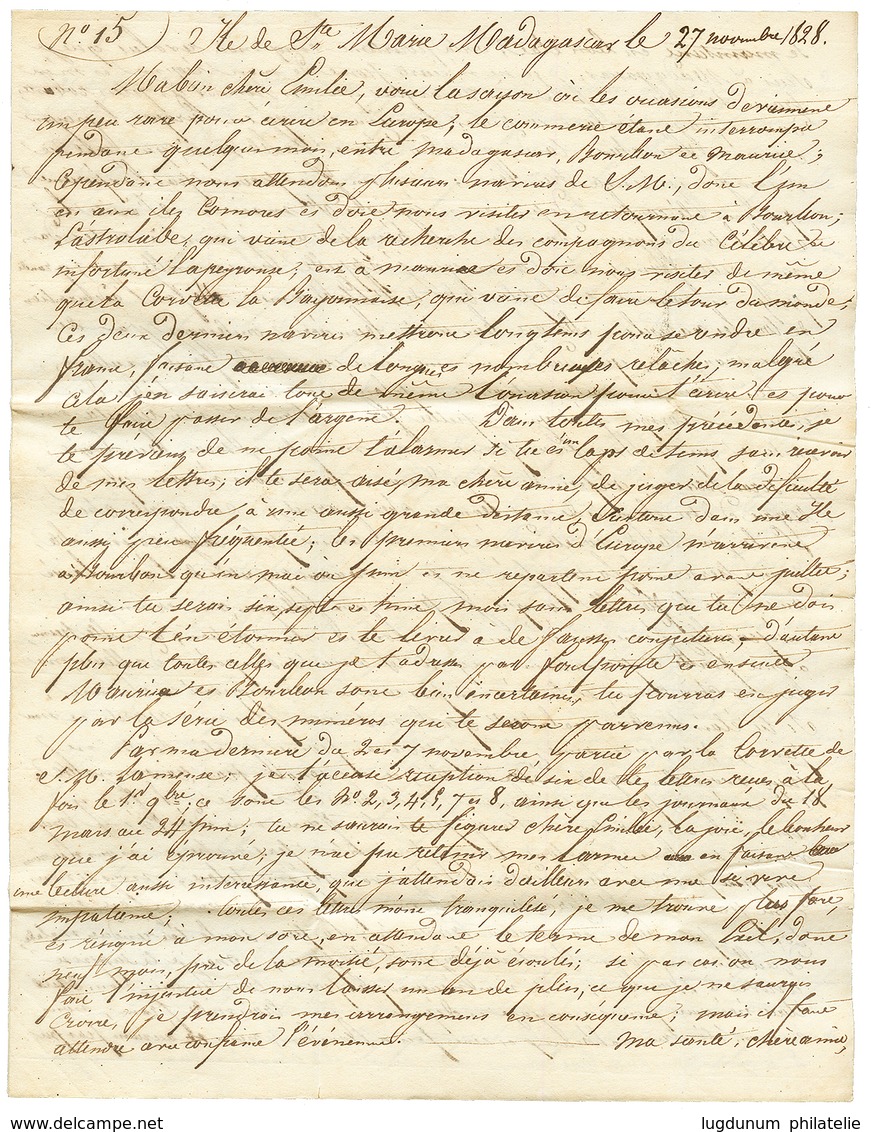 N° 15 Ile de Ste Marie Madagascar le 27 novembre 1828.
Ma bien chère Emilie, voici la saison où les occasions deviennent
un peu rare pour écrire en Europe, le commerce étant interrompu
pendant quelques mois, entre Madagascar, Bourbon et Maurice ;
Cependant nous attendons plusieurs navires de S.M., dont l'un
est aux iles Comores et doit nous visiter en retournant à Bourbon ;
L'astrolabe, qui vient de la recherche des compagnons du Célèbre et
infortuné Lapeyrouse, est à maurice et doit nous visiter de même
que la Corvette la Bayonnaise, qui vient de faire le tour du monde ;
Ces deux derniers navires mettront longtems pour se rendre en
france, faisant de longues et nombreuses relâches, malgré
cela j'en saisirai tout de même l'occasion pour t'écrire et pour
te faire passer de l'argent. Dans toutes mes précédentes, je
te préviens de ne point t'alarmer si tu es un laps de tems sans recevoir
de mes lettres ; il te sera aisé, ma chère amie, de juger de la difficulté
de correspondre à une aussi grande distance, surtout dans une Ile
aussi peu fréquentée ; les premiers navires d'Europe n'arrivent
à Bourbon qu'en mai ou juin et ne repartent point avant juillet ;
ainsi tu serais six, sept et huit mois sans lettres que tu ne dois
point t'en étonner et te livrer à de fausses conjectures, d'autant
plus que toutes celles que je t'adresse par foulpointe et ensuite
Maurice et Bourbon sont bien incertaines, tu pourras en juger
par la série des numéros qui te seront parvenus.
Par ma dernière du 2 et 7 novembre partie par la Corvette de
S.M. , je t'accuse réception de six de tes lettres reçues à la
fois le 1er 9bre, ce sont les N° 2, 3, 4, 5, 7 et 8, ainsi que les journaux du 18
mars au 24 juin ; tu ne saurais te figurer chère Emilie, la joie, le bonheur
que j'ai éprouvé ; je n'ai pu retenir mes larmes en faisant
une lecture aussi intéressante, que j'attendais d'ailleurs avec une si vive
impatience ; toutes ces lettres m'ont tranquilisé, je me trouve plus fort,
et résigné à mon sort, en attendant le terme de mon Exil, dont
neuf mois, près de la moitié, sont déjà écoulés ; si par cas on nous
fait l'injustice de nous laisser un an de plus, ce que je ne saurais
Croire, je prendrai mes arrangemens en conséquence ; mais il faut
attendre avec confiance l'événement. Ma santé, chère amie,
www.delcampe.net
lugdunum philatelie